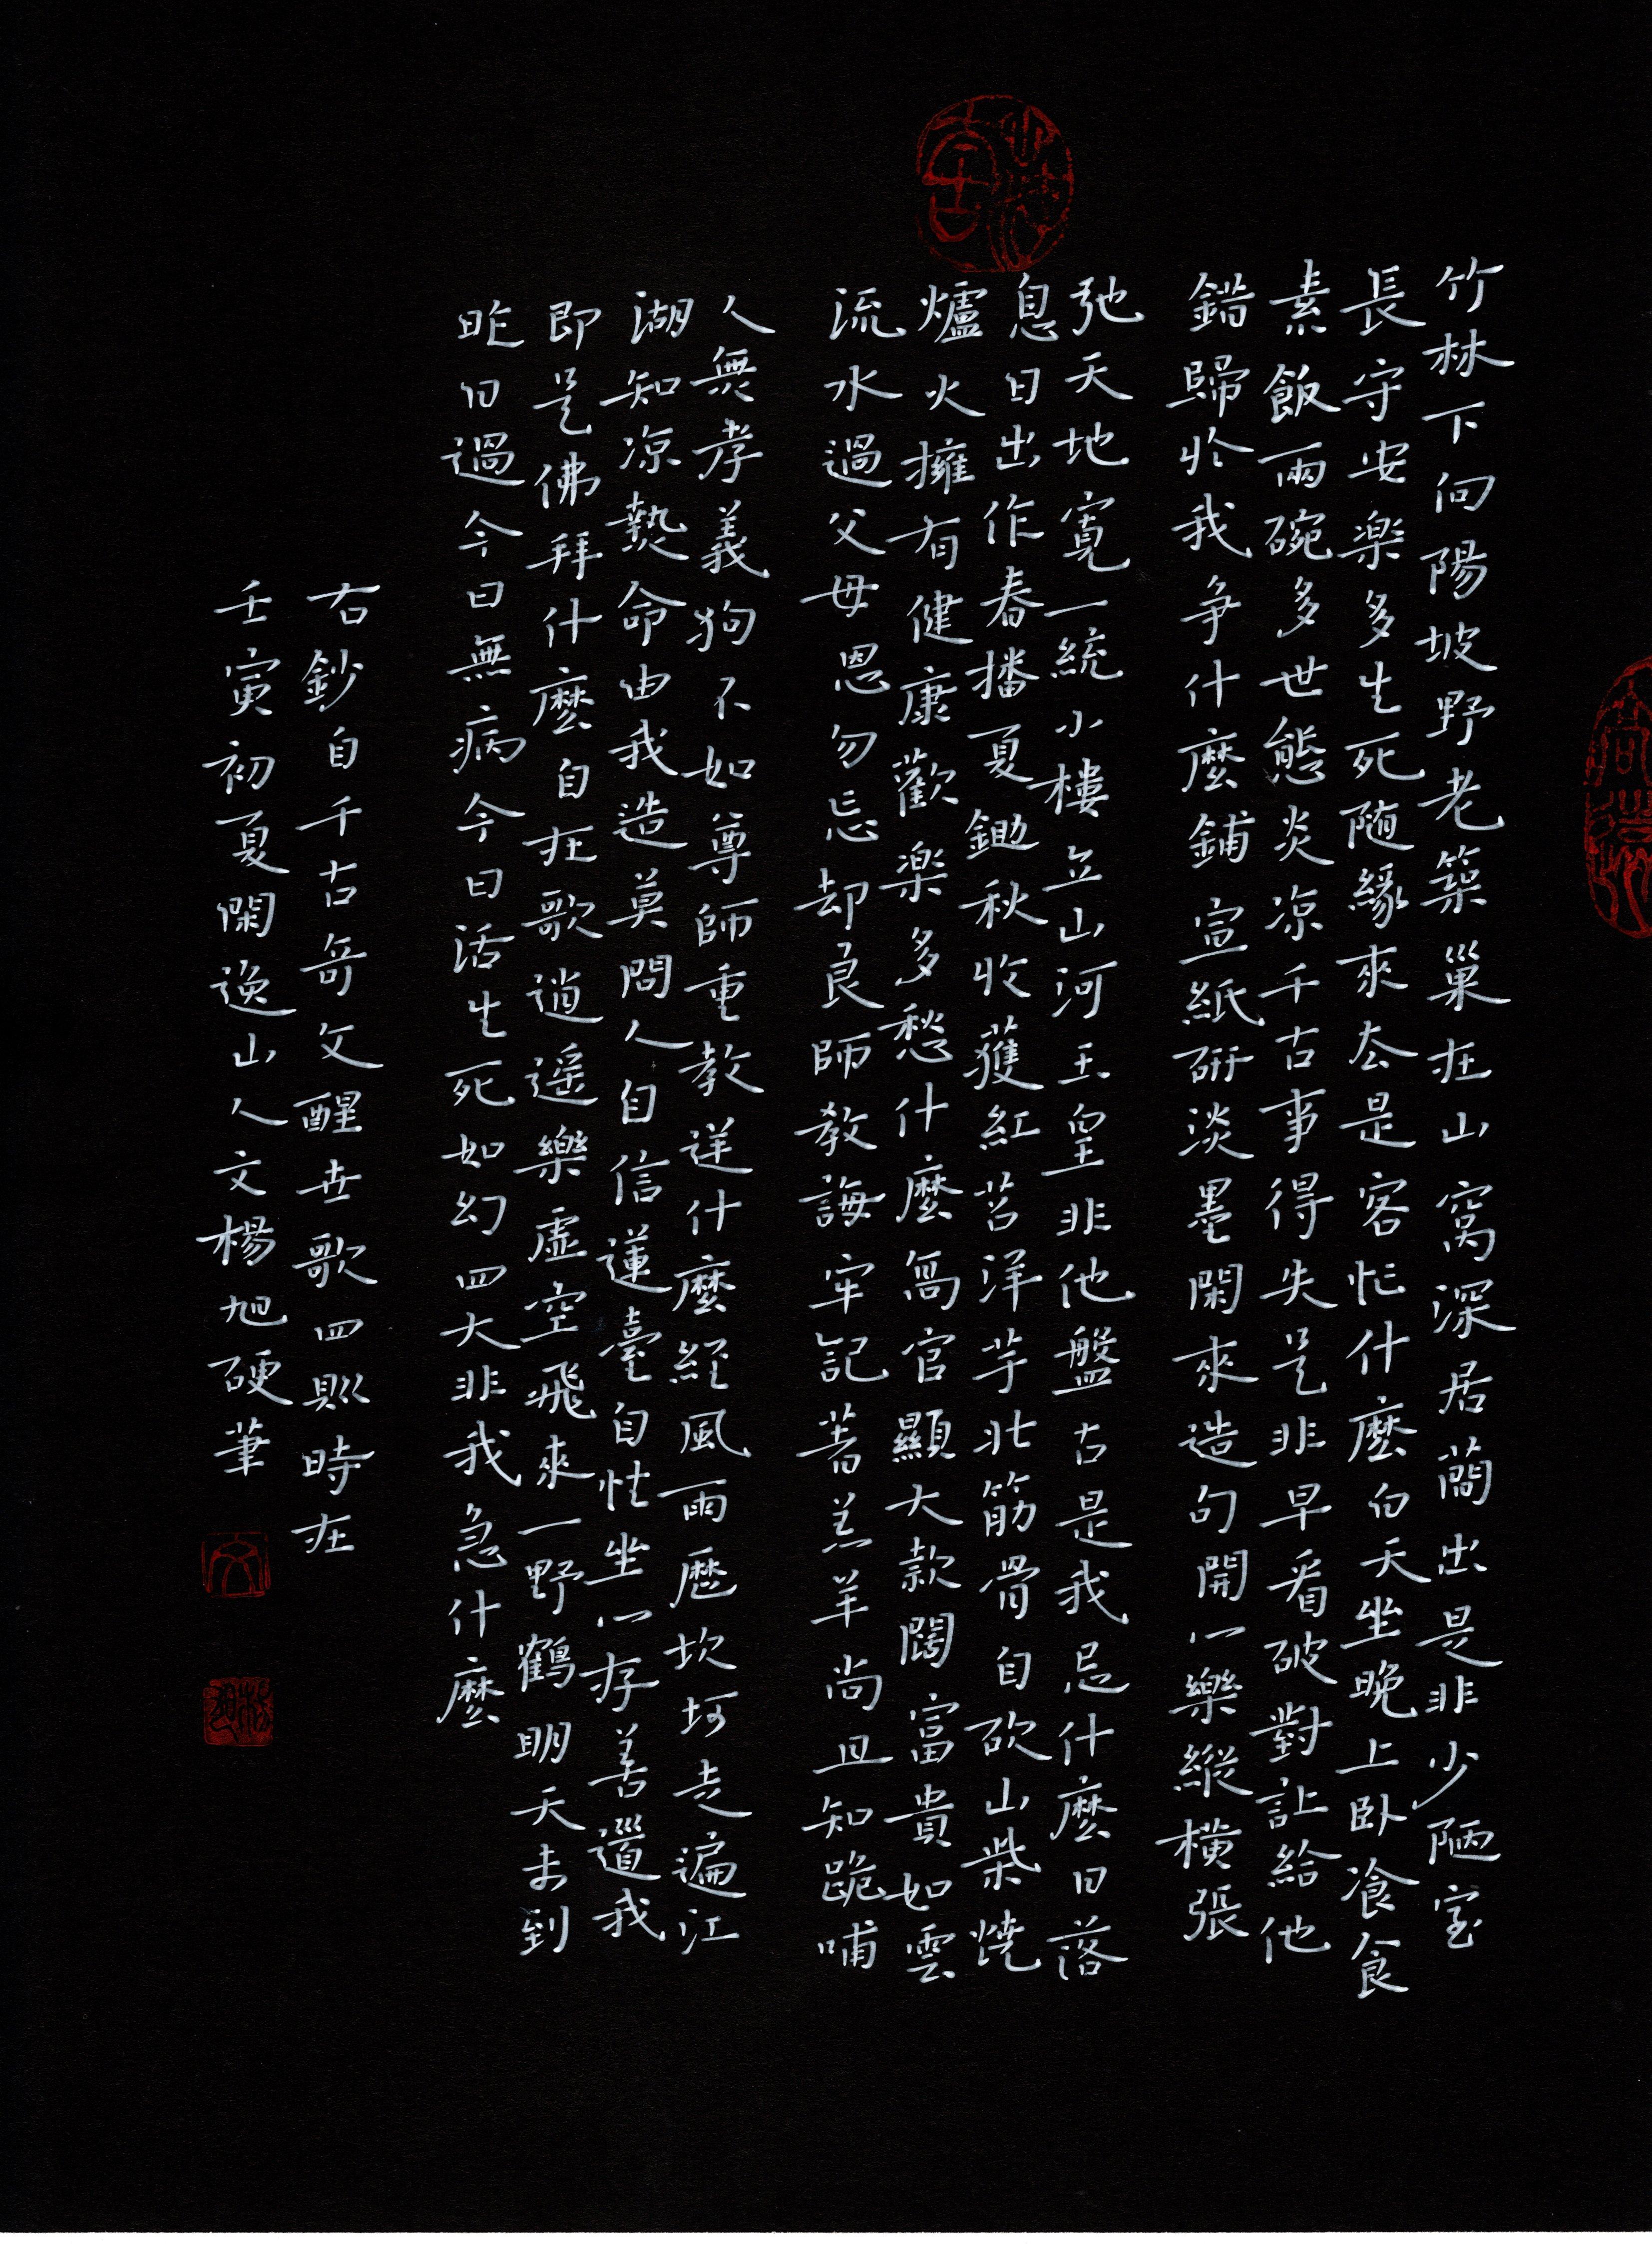 竹林下向陽坡野老築巢在山窩深居蕳出是非少陋室
長守安楽多生死随緣來去是客忙什麼白天坐晚上卧飡食
素飯兩碗多世態炎凉千古事得失是非早看破對訨給他
錯歸於我争什麼鋪宣紙研淡墨閑來造句開心樂縱横張
弛天地寬一統小樓立山河玉皇非他盤古是我忌什麼日落
息日出作春播夏鋤秋收獲紅苕洋芋壮筋骨自砍山柴燒
爐火擁有健康歡楽多愁什麼高官顯大款闊富貴如雲
流水過父母恩勿忘却良師教誨牢記著羔羊尚且知跪哺
人無孝義狗不如尊師重教送什麼經風雨歷坎坷走遍江
湖知凉熱命由我造莫問人自信蓮臺自性坐心存善道我
即是佛拜什麼自在歌逍遥樂虚空飛來一野鶴明天未到
昨日過今日無病今日活生死如幻四大非我急什麼
右鈔自千古奇文醒世歌四則時在
壬寅初夏閑逸山人文楊旭硬筆